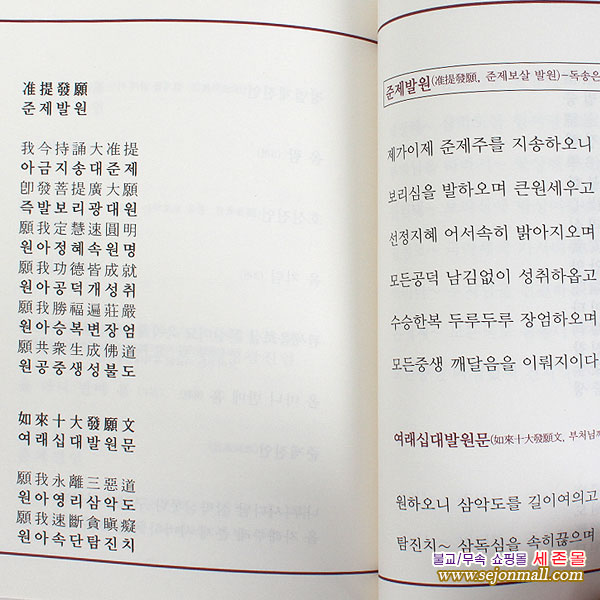 准提發願
준제발원
我今持誦大准提
아금지송대준제
卽發菩提廣大願
즉발보리광대원
願我定慧速圓明
원아정혜속원명
願我功德皆成就
원아공덕개성취
願我勝福遍莊嚴
원아승복변장엄
願共衆生成佛道
원공중생성불도
如來十大發願文
여래십대발원문
願我永離三惡道
원아영리삼악도
願我速斷貪瞋癡
원아속단탐진치
준제발원(准提發願, 준제보살 발원)-독송은
제가이제 준제주를 지송하오니
보리심을 발하오며 큰원세우고
선정지혜 어서속히 밝아지오며
모든공덕 남김없이 성취하옵고
수승한복 두루두루 장엄하오며
모든중생 깨달음을 이뤄지이다
여래십대발원문(如來十大發願文, 부처님께
원하오니 삼악도를 길이여의고
탐진치~ 삼독심을 속히끊으며
불교/무속 쇼핑몰 세존몰
www.sejonmall.com